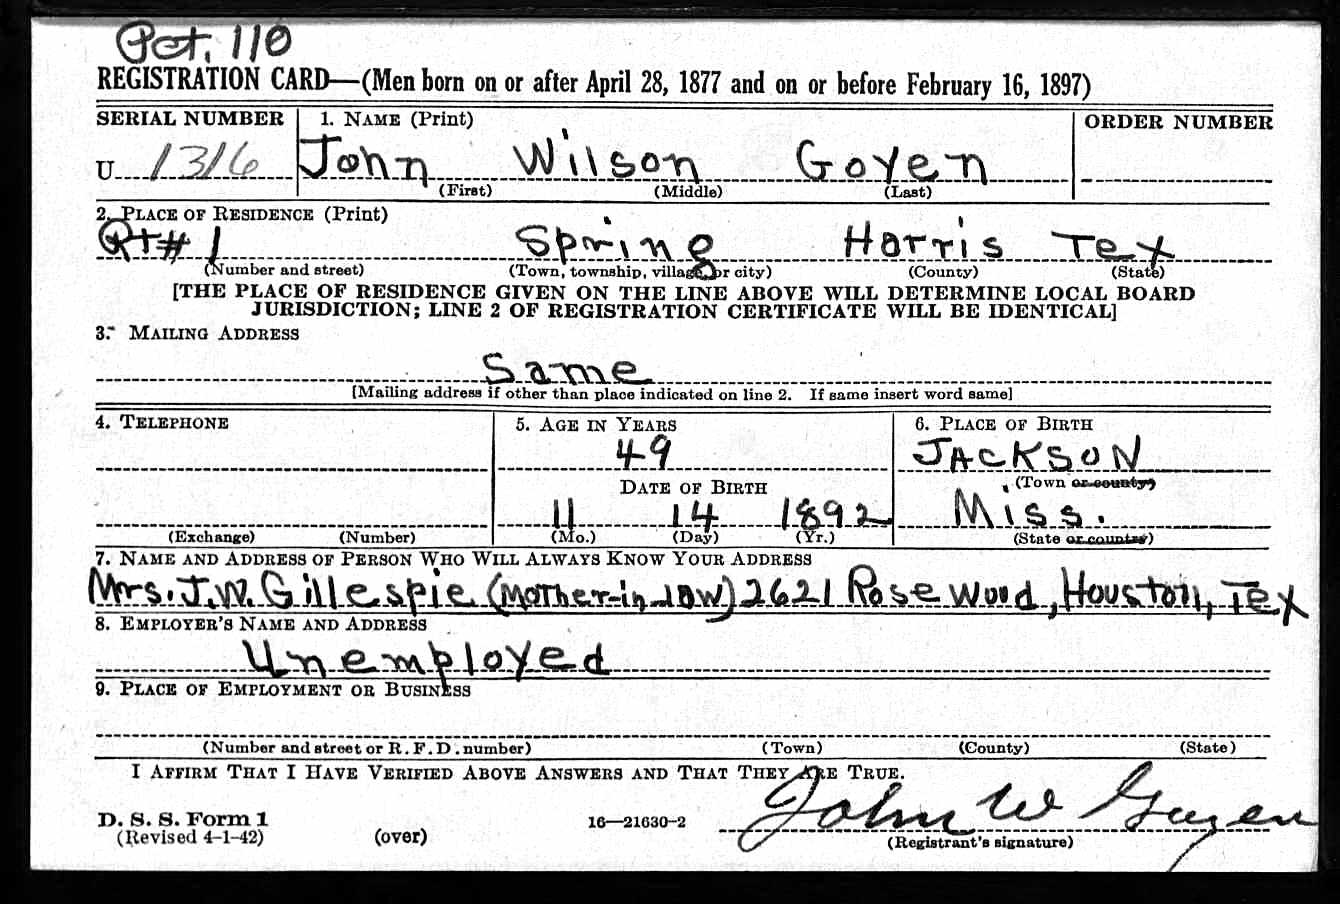 Pct. 110
REGISTRATION CARD—(Men born on or after April 28, 1877 and on or before February 16, 1897)
SERIAL NUMBER 1. NAME (Print) ORDER NUMBER
U 1316 John Wilson Goyen
(First) (Middle) (Last)
2. PLACE OF RESIDENCE (Print)
Rt# 1 Spring Harris Tex
(Number and street) (Town, township, village, or city) (County) (State)
[THE PLACE OF RESIDENCE GIVEN ON THE LINE ABOVE WILL DETERMINE LOCAL BOARD
JURISDICTION; LINE 2 OF REGISTRATION CERTIFICATE WILL BE IDENTICAL]
3. MAILING ADDRESS
Same
[Mailing address if other than place indicated on line 2. If same insert word same]
4. TELEPHONE 5. AGE IN YEARS 6. PLACE OF BIRTH
49 JACKSON
DATE OF BIRTH (Town or county)
11 14 1892 Miss.
(Exchange) (Number) (Mo.) (Day) (Yr.) (State or country)
7. NAME AND ADDRESS OF PERSON WHO WILL ALWAYS KNOW YOUR ADDRESS
Mrs. J.W. Gillespie (Mother-in-law) 2621 Rose Wood, Houston, Tex
8. EMPLOYER'S NAME AND ADDRESS
Unemployed
9. PLACE OF EMPLOYMENT OR BUSINESS
(Number and street or R. F. D. number) (Town) (County) (State)
I AFFIRM THAT I HAVE VERIFIED ABOVE ANSWERS AND THAT THEY ARE TRUE.
D. S. S. Form 1 16—21630-2 John W Goyen
(Revised 4-1-42) (over) (Registrant's signature)